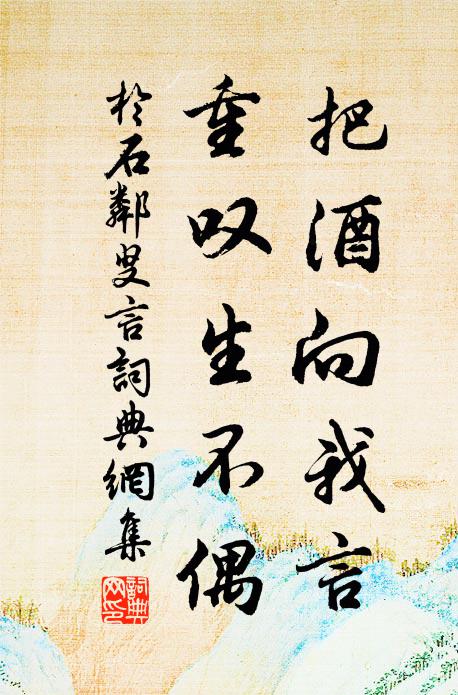 把酒向我言
重叹生不偶
於石鄰叟言詞典網集
詞典